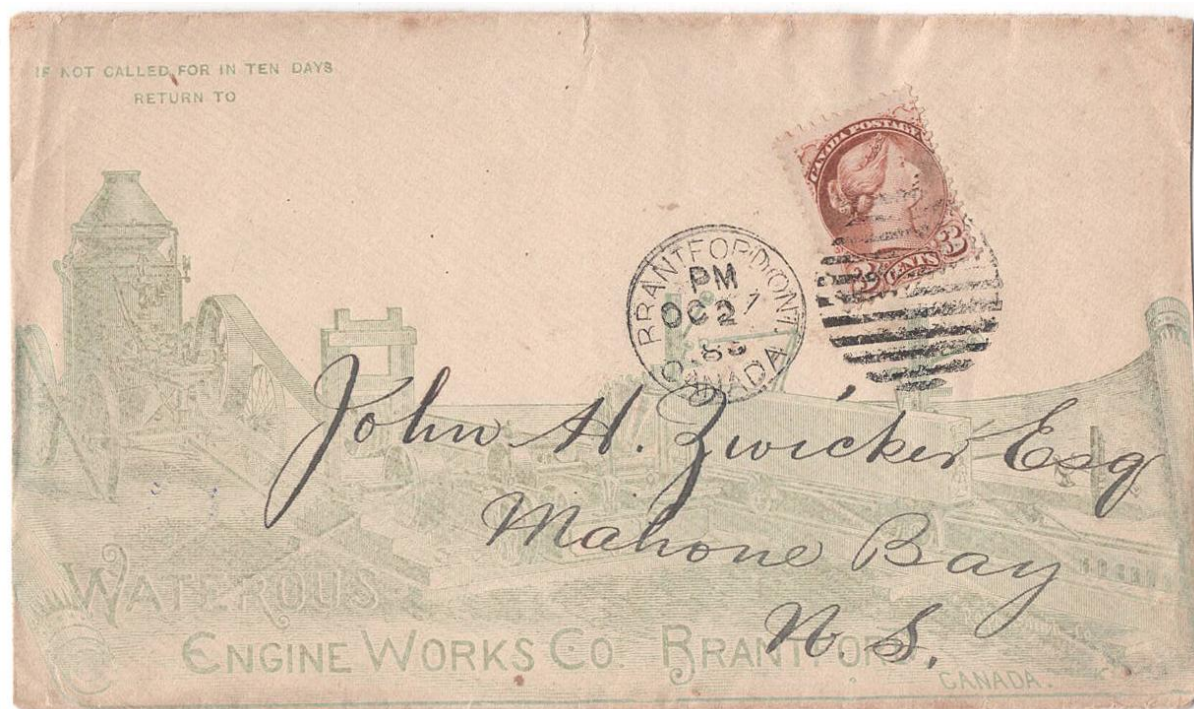 IF NOT CALLED FOR IN TEN DAYS
RETURN TO
CANADA POSTAGE
3 CENTS 3
BRANTFORD ONT
PM
OC 2
CANADA
John H. Zwicker Esq
Mahone Bay
N. S.
WATEROUS
ENGINE WORKS CO. BRANTFORD
CANADA.